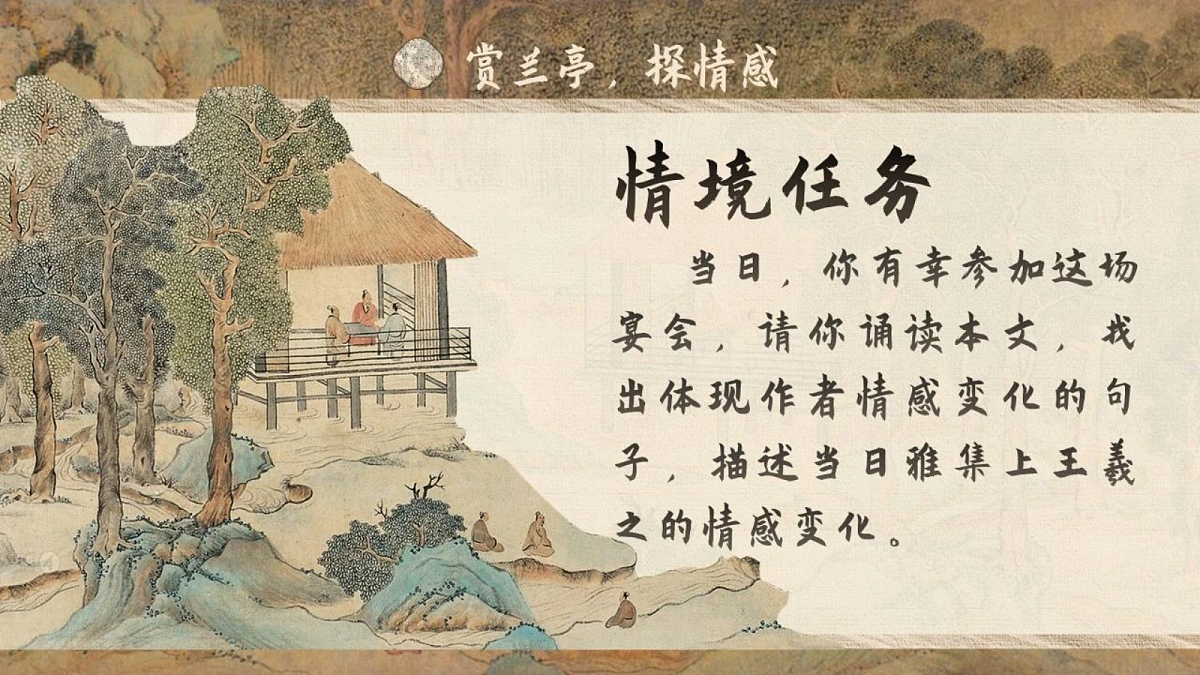 赏兰亭，探情感
情境任务
当日，你有幸参加这场
宴会，请你诵读本文，找
出体现作者情感变化的句
子，描述当日雅集上王羲
之的情感变化。